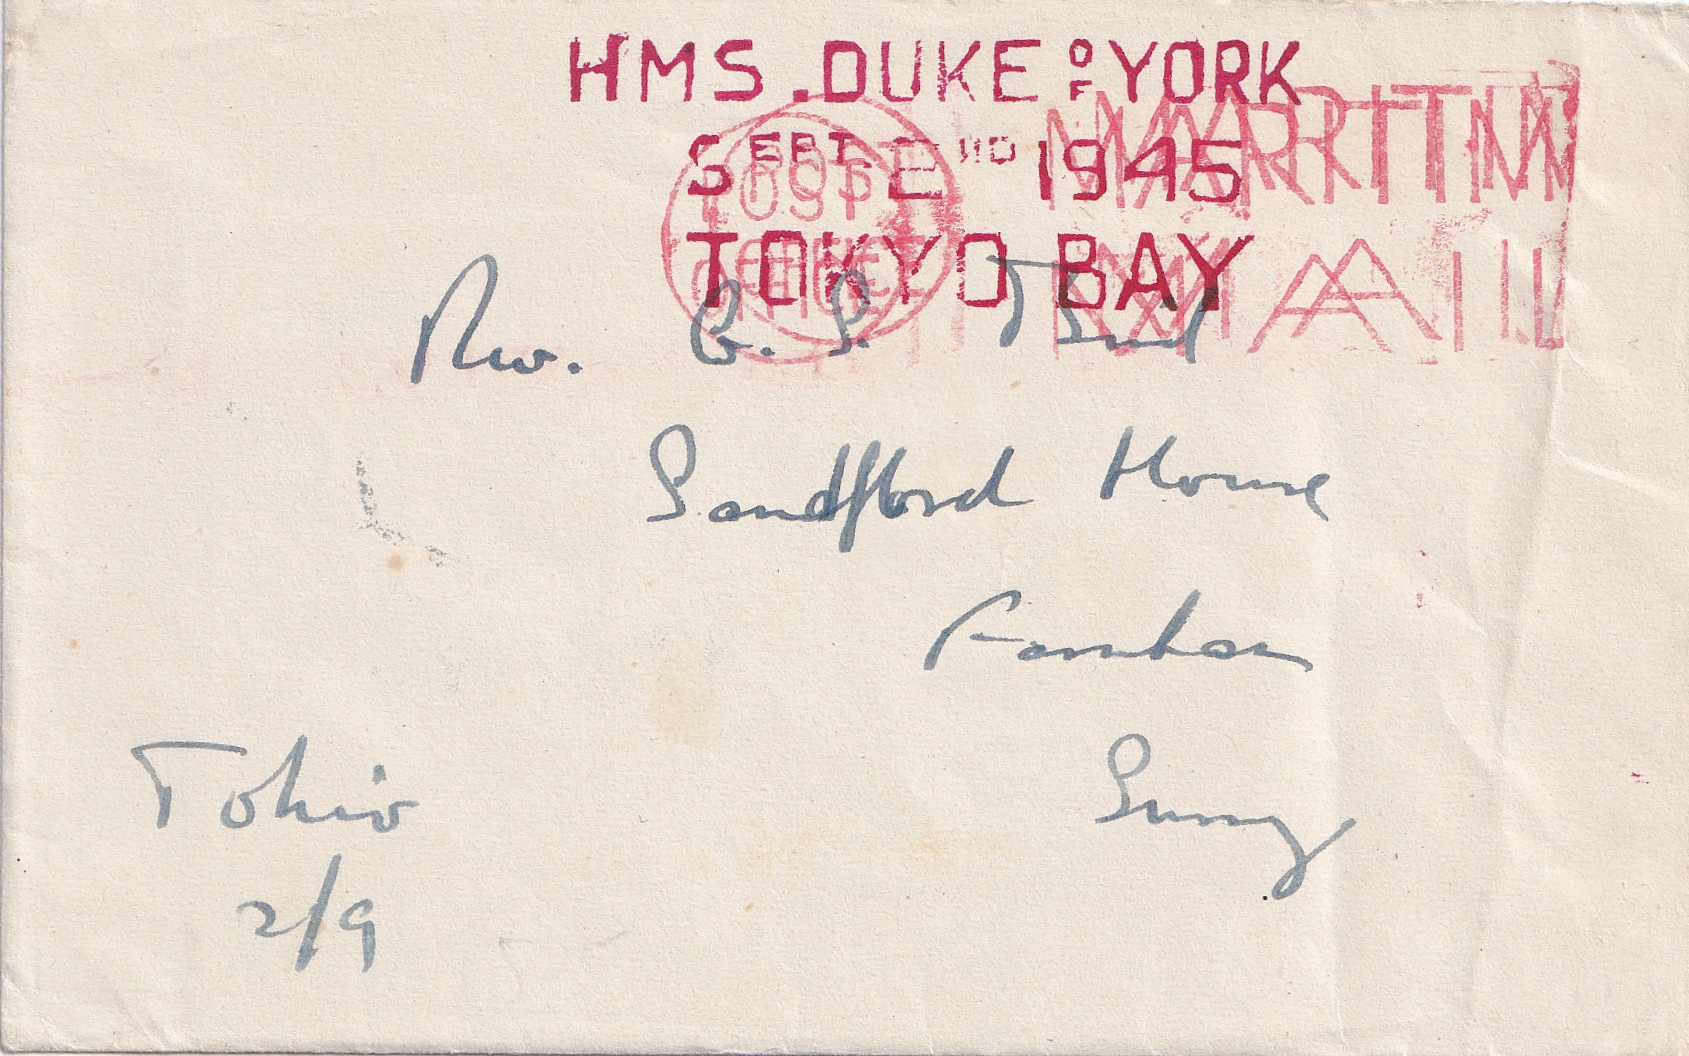 HMS. DUKE OF YORK
SEPT. 2ND 1945
TOKYO BAY
POST OFFICE
MARITIME MAIL
Rev. G. S.
Sandford House
Farnham
Surrey
Tokio
2/9